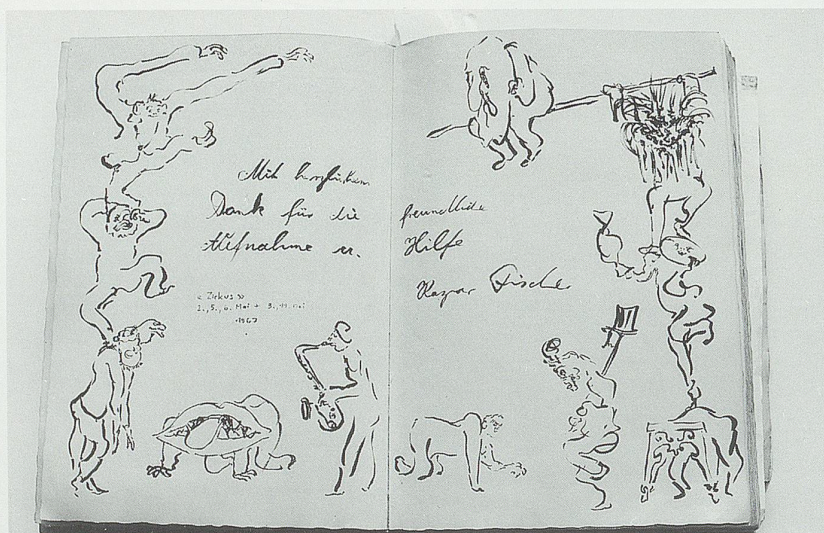 Mit herzlichem
Dank für die
Aufnahme u.
« Zirkus »
1967
freundliche
Hilfe
Kaspar Fischer